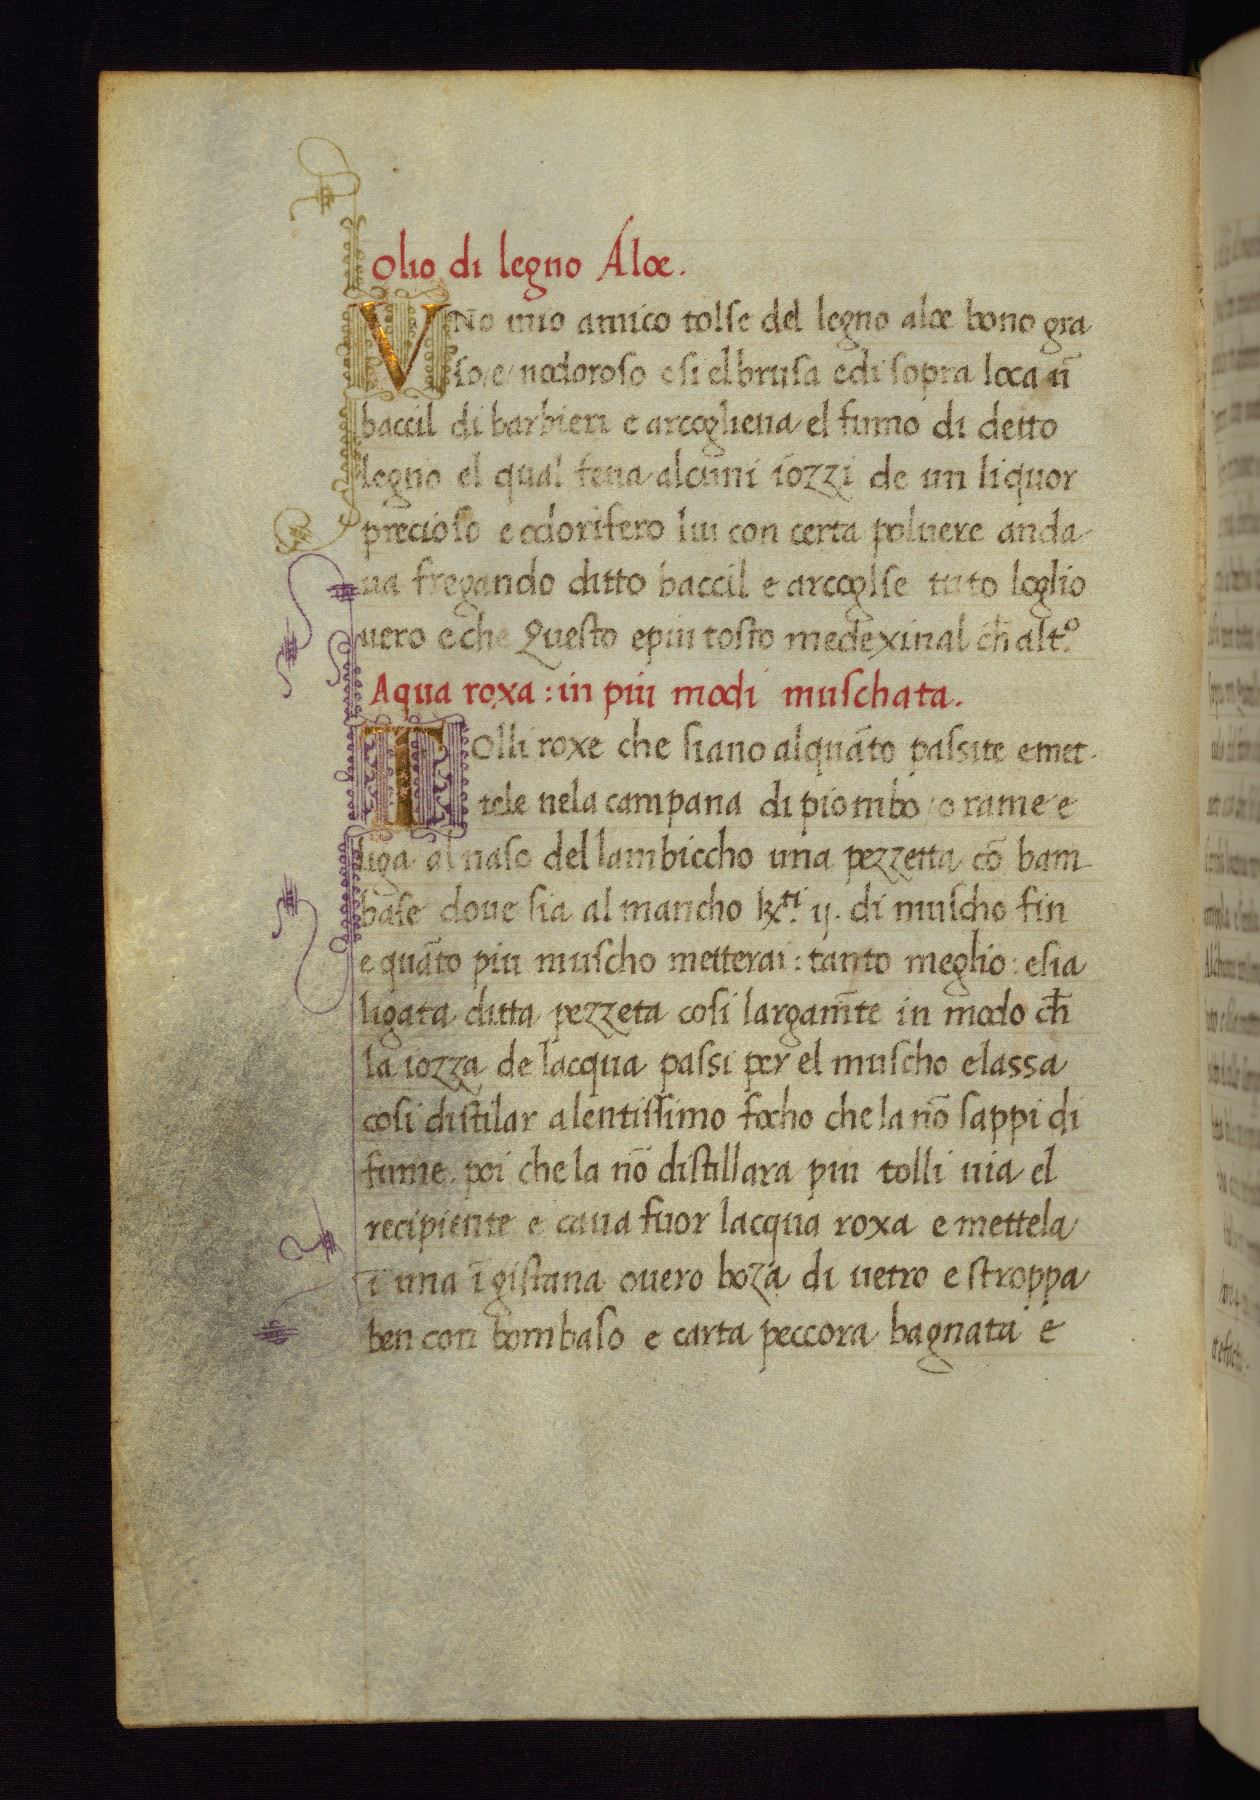 olio di legno Áloe.
VNo mio amico tolse del legno aloe bono gra
so/e/nodoroso e si el brusa e di sopra loca ũ
baccil di barbieri e arcoglieua el fumo di detto
legno el qual feua alcuni iozzi de un liquor
precioso e odorifero lui con certa poluere anda
ua fregando ditto baccil e arcoglse tuto loglio
uero e che Questo e piu tosto medexinal ch̄ altº.
Aqua roxa: in piu modi muschata.
TOlli roxe che siano alquãto passite e met-
tele nela campana di piombo / o rame e
liga al naso del lambiccho una pezzetta cõ bam
base doue sia al mancho kr̃ti ij. di muscho fin
e quãto piu muscho metterai: tanto meglio: e sia
ligata ditta pezzeta cosi largam̃te in modo ch̄
la iozza de lacqua passi per el muscho e lassa
cosi distilar a lentissimo focho che la nõ sappi di
fume. poi che la nõ distillara piu tolli uia el
recipiente e caua fuor lacqua roxa e mettela
ĩ una ĩgistana ouero boza di uetro e stroppa
ben con bombaso e carta peccora bagnata e